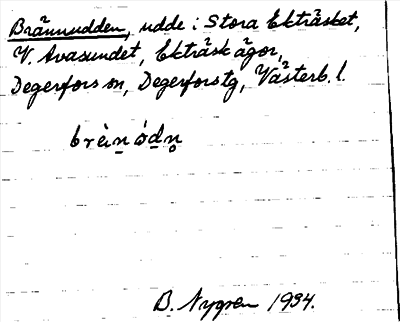 Brännudden, udde i Stora Ekträsket,
V. Avasundet, Ekträsk ägor,
Degerfors sn, Degerfors tg, Västerb. l.
brèinódn̥
B. Nygren 1934.